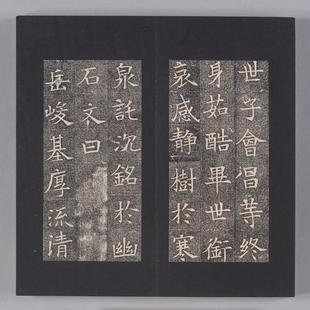 世子會昌等終
身茹酷畢世銜
哀感静樹於寒
泉託沉銘於幽
石文曰
岳峻基厚流清